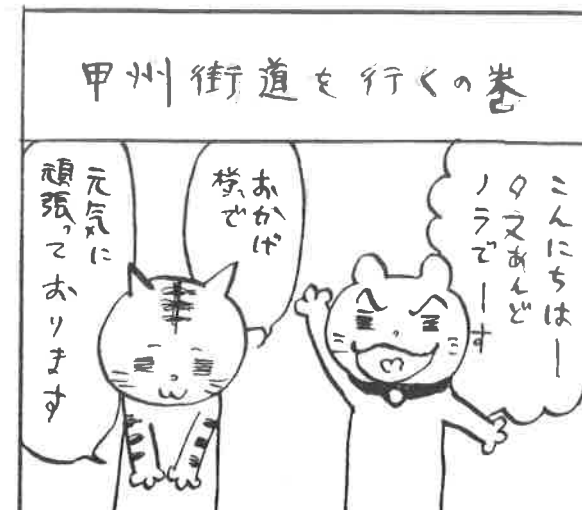 甲州街道を行くの巻
こんにちはー
タヌあんど
ノラでーす
おかげ
様で
元気に
頑張っております